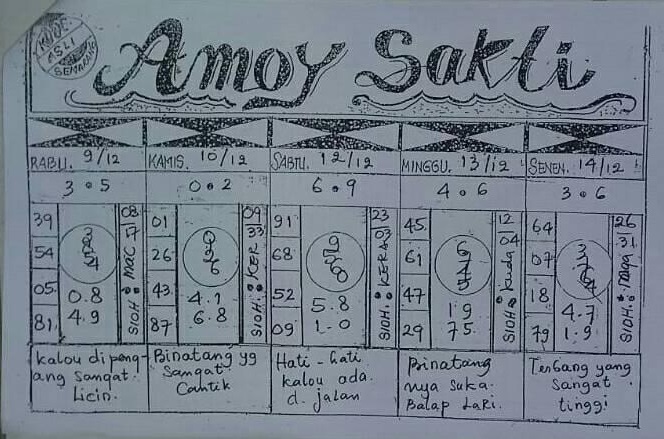 KODE
ASLI
SEMARANG
Amoy Sakti
RABU. 9/12
3 • 5
39
54
05
81
0.8
4.9
08
17
SIOH: MAC
kalou dipeng-
ang sangat.
Licin.
KAMIS. 10/12
0 • 2
01
26
43
87
4.1
6.8
09
33
SIOH: KER
Binatang yg
Sangat
Cantik
SABTU. 12/12
6 • 9
91
68
52
09
5.8
1-0
23
03
SIOH:
Hati-hati
kalou ada.
d. jalan
MINGGU. 13/12
4 • 6
45
61
47
29
19
75.
12
04
SIOH: kuda
Binatang
nya suka.
Balap Lari.
SENEN. 14/12
3 • 6
64
07
18
79
4.7
1.9
26
31
SIOH: naga
Terbang yang
sangat
tinggi